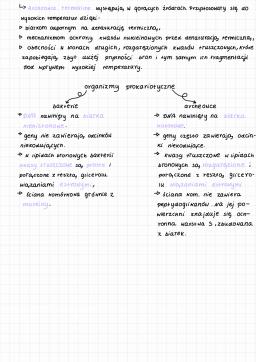 ↳ Archeony termofilne występują w gorących źródłach. Przystosowały się do
wysokich temperatur dzięki:
białkom odpornym na denaturację termiczną,
mechanizmom ochrony kwasów nukleinowych przed denaturacją termiczną,
obecności w błonach długich, rozgałęzionych kwasów tłuszczowych, które
zapobiegają zbyt dużej płynności błon i tym samym ich fragmentacji
pod wpływem wysokiej temperatury.
organizmy prokariotyczne
bakterie
→ DNA nawinięty na białka
niehistonowe.
→ geny nie zawierają odcinków
niekodujących.
→ w lipidach błonowych bakterii
kwasy tłuszczowe są proste i
połączone z resztą glicerolu
wiązaniami estrowymi,
→ ściana komórkowa głównie z
mureiny.
archeowce
→ DNA nawinięty na białka
histonowe.
→ geny często zawierają odcin-
ki niekodujące.
→ kwasy tłuszczowe w lipidach
błonowych są rozgałęzione i
połączone z resztą glicero-
lu wiązaniami eterowymi
→ ściana kom. nie zawiera
peptydoglikanów. Na jej po-
wierzchni znajduje się och-
ronna warstwa S, zbudowana
z białek.